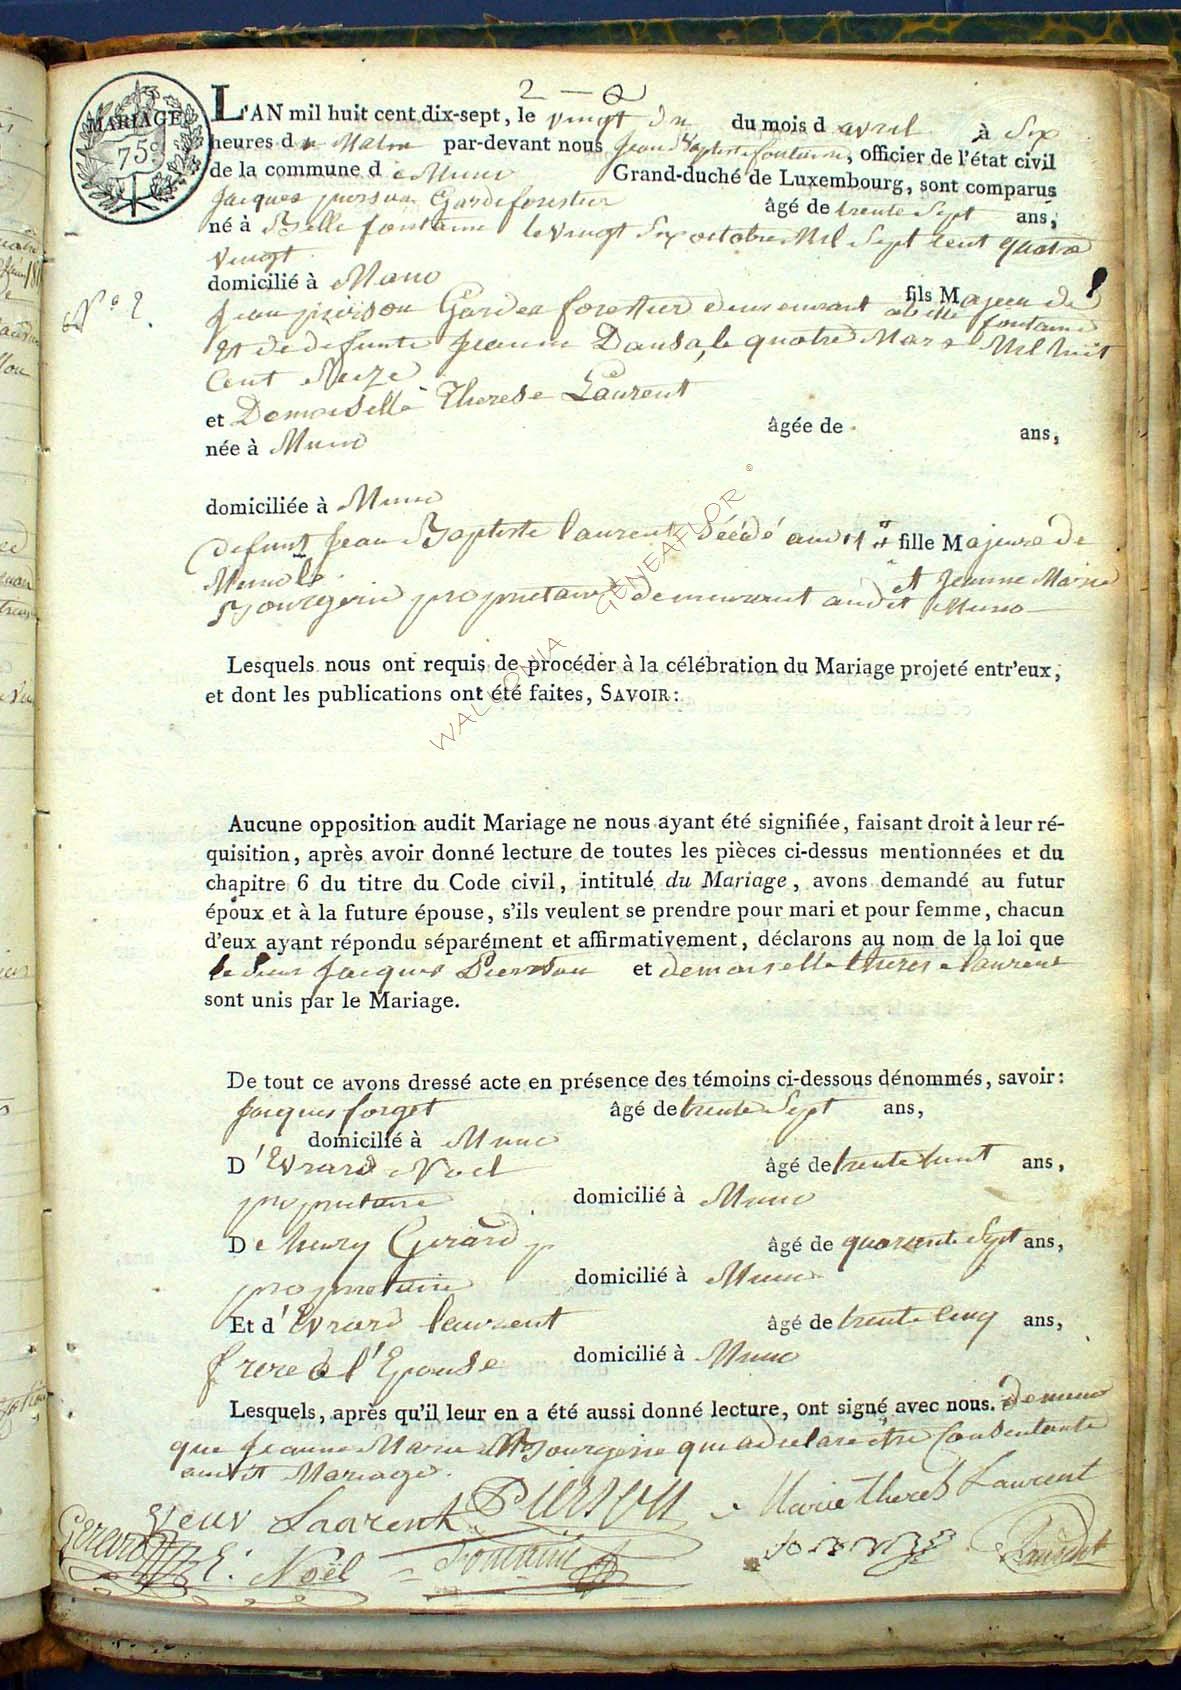 2 — 2
MARIAGE
75c
L'AN mil huit cent dix-sept, le vingt du mois d avril à Six
heures du Matin par-devant nous Jean Baptiste fontaine, officier de l'état civil
de la commune d e Muno Grand-duché de Luxembourg, sont comparus
Jacques pierson Garde forestier âgé de trente Sept ans,
né à Belle fontaine le vingt Six octobre Mil Sept cent quatre
vingt
domicilié à Muno
N° 2.
fils Majeur de
Jean pierson Garde forestier demeurant a belle fontaine
Et de defunte Jeanne le quatre Mars Mil huit
Cent Seize
et Demoiselle Therese Laurent
âgée de ans,
née à Muno
domiciliée à Muno
fille Majeure de
defunt Jean Baptiste laurent décédé audit
Muno le Et Jeanne Marie
Bourgerie proprietaire demeurant audit Muno
Lesquels nous ont requis de procéder à la célébration du Mariage projeté entr'eux,
et dont les publications ont été faites, SAVOIR:
WALLONIA GENEAFLOR ©
Aucune opposition audit Mariage ne nous ayant été signifiée, faisant droit à leur ré-
quisition, après avoir donné lecture de toutes les pièces ci-dessus mentionnées et du
chapitre 6 du titre du Code civil, intitulé du Mariage, avons demandé au futur
époux et à la future épouse, s'ils veulent se prendre pour mari et pour femme, chacun
d'eux ayant répondu séparément et affirmativement, déclarons au nom de la loi que
le Sieur Jacques Pierson et demoiselle therese laurent
sont unis par le Mariage.
De tout ce avons dressé acte en présence des témoins ci-dessous dénommés, savoir:
Jacques forget âgé de trente Sept ans,
domicilié à Muno
D'Evrard Noel âgé de trente huit ans,
proprietaire domicilié à Muno
De henry Gerard âgé de quarante Sept ans,
proprietaire domicilié à Muno
Et d'Evrard laurent âgé de trente cinq ans,
frere de l'Epouse domicilié à Muno
Lesquels, après qu'il leur en a été aussi donné lecture, ont signé avec nous. de meme
que Jeanne Marie Bourgerie qui a declaré être Consentante
audit Mariage.
Laurent Pierson Marie therese Laurent
Gerard E. Noël Fontaine Laurent